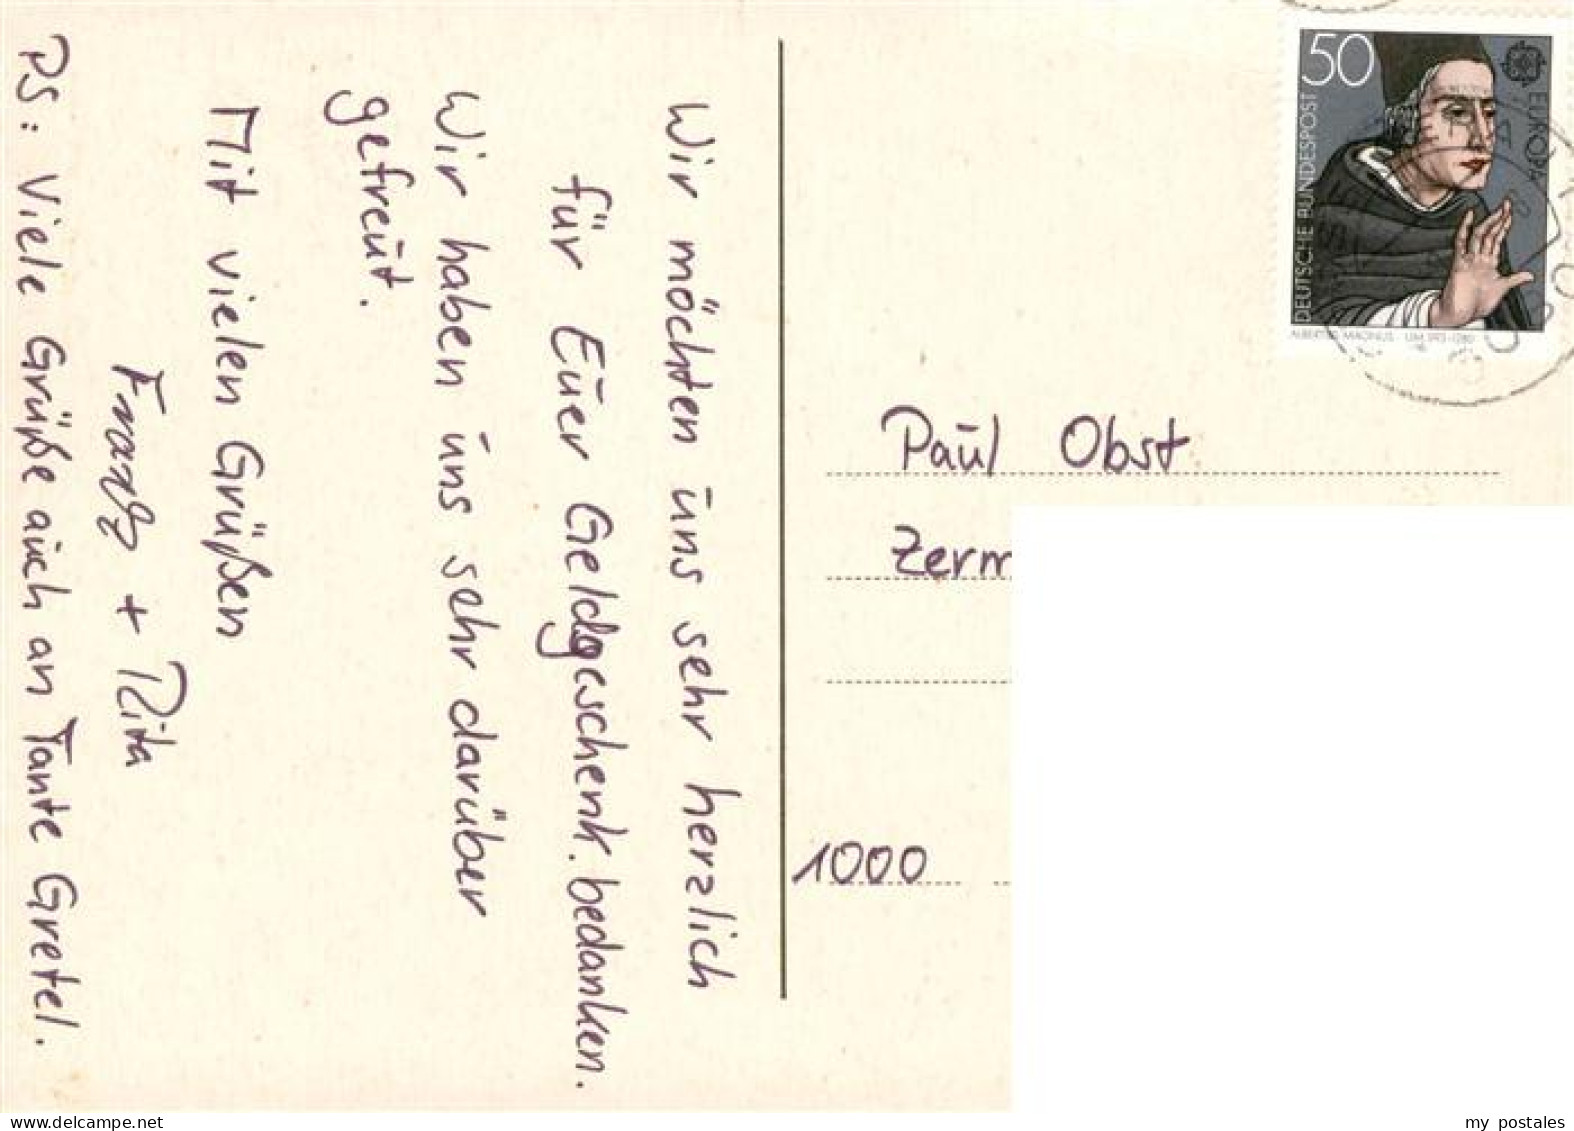 Wir möchten uns sehr herzlich
für Euer Geldgeschenk bedanken.
Wir haben uns sehr darüber
gefreut.
Mit vielen Grüßen
Franz + Rita
PS: Viele Grüße auch an Tante Gretel.
50
DEUTSCHE BUNDESPOST
EUROPA
ALBERTUS MAGNUS · UM 1193-1280
Paul Obst
Zerm
1000
www.ansichtskarten-center.de
my postales